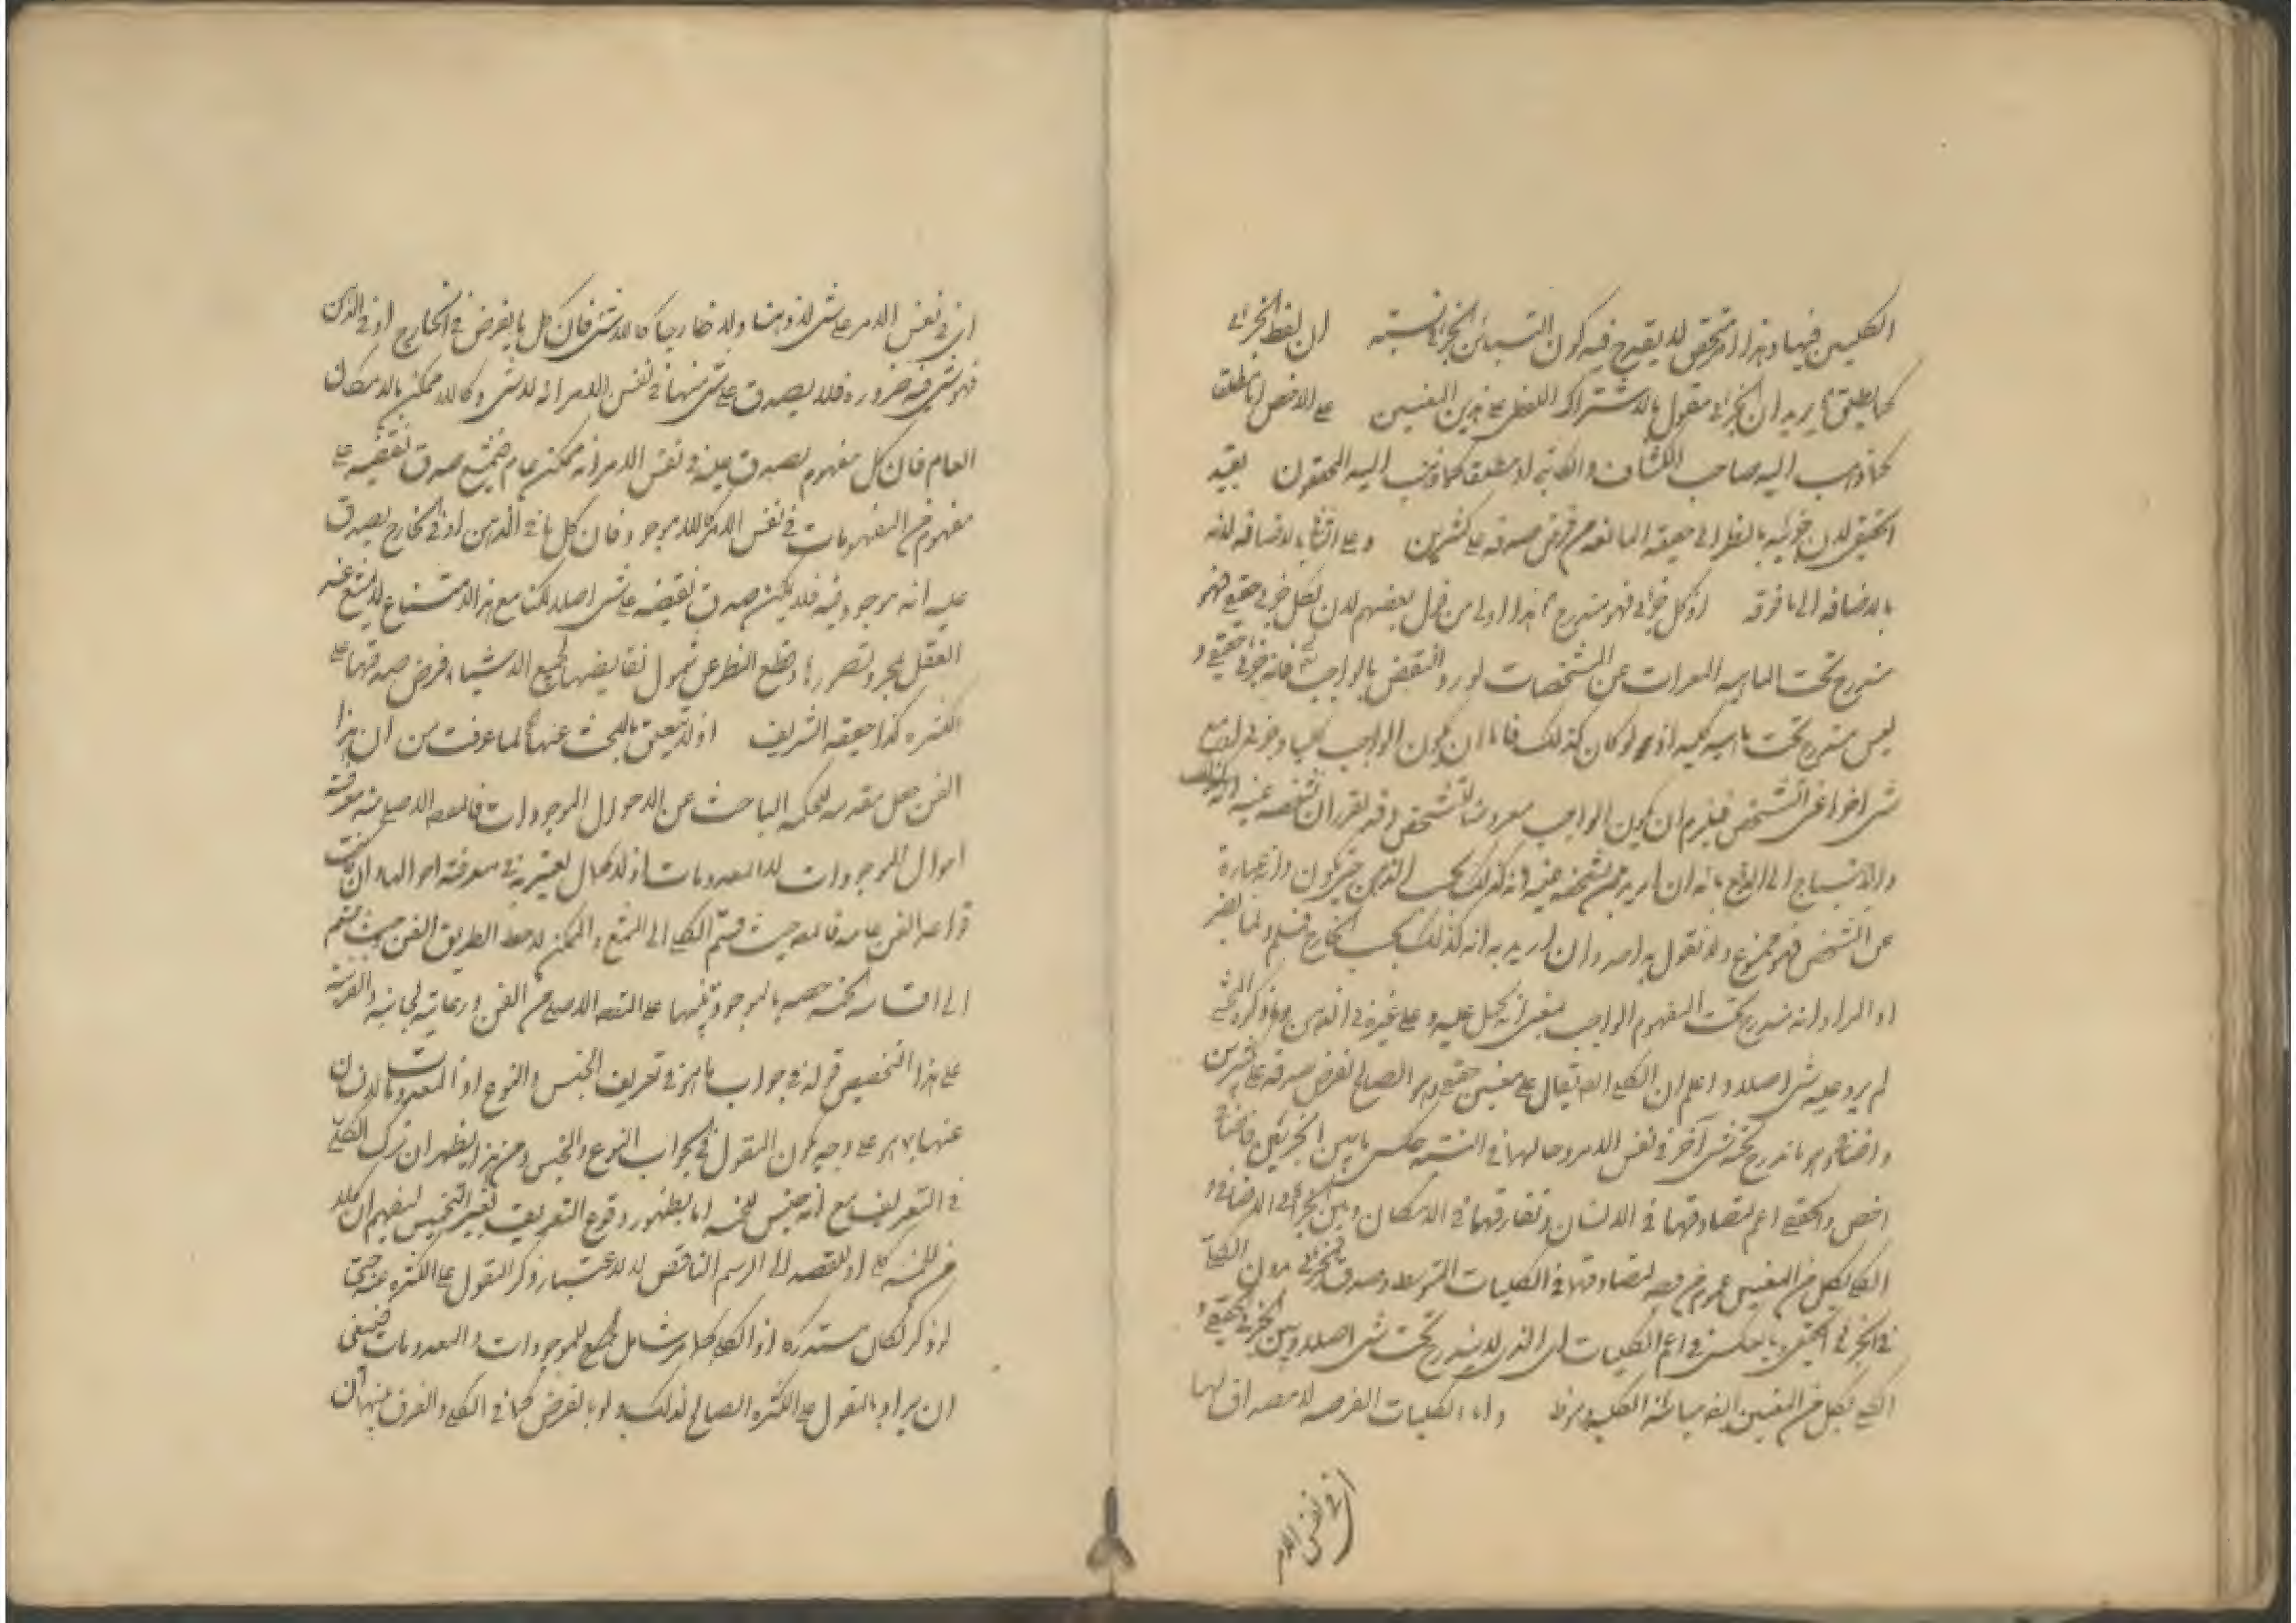 الكليين فيها وهذا امر تحقق لا يقدح فيه كون التباين الجزئي نسبته ان لفظ الجزئي
كما يطلق يريد ان الجزئي مقول بالاشتراك اللفظي على هذين المعنيين على الاخص مطلقا
كما ذهب اليه صاحب الكشاف والمحققون يقيد
الحقيقي لان جزئيته بالنظر الى حقيقته المانعة من فرض صدقه على كثيرين وعلى الثاني بالاضافة لانه
بالاضافة الى ما فوقه اذ كل جزئي فهو مندرج هذا اولى من قول بعضهم لان كل جزئي حقيقي فهو
مندرج تحت الماهية المعراة عن المشخصات لورود النقض بالواجب فانه جزئي حقيقي و
ليس مندرج تحت ماهية كلية اذ لو كان كذلك فاما ان يكون الواجب كليا وجزئيا او مع
شيء اخر اعني التشخص فيلزم ان يكون الواجب معروضا للتشخص وقد تقرر ان تشخصه عينه
والاحتياج الى الدفع بانه ان اريد من تشخصه عينه انه كذلك بحسب الذهن حتى يكون عبارة
عن التشخص فهو ممنوع ولم نقول به احد وان اريد به انه كذلك بحسب الخارج فمسلم ولا يضر
اذ المراد انه مندرج تحت المفهوم الواجب بمعنى انه يحمل عليه وعلى غيره في الذهن
لم يرد عليه شيء اصلا واعلم ان الكلي ايضا يقال على معنيين حقيقي وهو الصالح لفرض صدقه على كثيرين
واضافي وهو ما اندرج تحته شيء آخر في نفس الامر وحالهما في النسبة عكس ما بين الجزئيين فالاضافي
اخص والحقيقي اعم لتصادقهما في الانسان وتفارقهما في الامكان وبين الجزئي الاضافي و
الكلي بكل من المعنيين عموم من وجه لتصادقهما في الكليات المتوسطة وصدق الجزئي دون الكلي
في الجزئي الحقيقي وبالعكس في اعم الكليات اي الذي لا يندرج تحت شيء اصلا وبين الجزئي الحقيقي و
الكلي بكل من المعنيين ايضا مباينة الكلية واما الكليات الفرضية لا مصداق لها
اي في نفس الامر
اي في نفس الامر على شيء لا ذهنا ولا خارجا كاللاشيء فان كل ما يفرض في الخارج او في الذهن
فهو شيء فيه ضرورة فلا يصدق على شيء منها في نفس الامر انه لاشيء وكاللاممكن بالامكان
العام فان كل مفهوم يصدق عليه في نفس الامر انه ممكن عام فيمتنع صدق نقيضه على
مفهوم من المفهومات في نفس الامر كاللاموجود فان كل ما في الذهن او في الخارج يصدق
عليه انه موجود فيه فلا يمكن صدق نقيضه على شيء اصلا لكنها مع هذا الامتناع لا يمتنع عند
العقل بمجرد تصورها وقطع النظر عن شمول نقايضها لجميع الاشياء فرض صدقها على
الكثرة كذا حققه الشريف اذ لا يتعلق بالبحث عنها لما عرفت من ان هذا
الفن جعل مقدمة للحكمة الباحثة عن الاحوال الموجودات فالمقصد الاصلي منه معرفة
احوال الموجودات لا المعدومات اذ لا كمال يعتد به في معرفة احوالها وان كانت
قواعد الفن عامة فالمصنف حيث قسم الكلي الى الممتنع والممكن لاحظ الطريق الفن حيث قسم
الى اقسام لكنه خصه بالموجود تنبيها على المقصد الاصلي من الفن ورعاية لجانبه والقرينة
على هذا التخصيص قوله في جواب ما هو في تعريف الجنس والنوع اذ المعدومات لا يسأل
عنها بما هو على وجه يكون المقول في الجواب النوع والجنس ومن هذا يظهر ان ترك الكلي
في التعريف مع انه جنس للخمسة اما بظهور وقوع التعريف بتفسير الخمس ليفهم ان كلا
من الخمسة كلي او لقصد الى الرسم الناقص لا لاعتبار ذكر المقول على الكثرة عنه حتى
لو ذكر لكان مستدركا اذ الكلي كلام شامل لجميع الموجودات والمعدومات فينبغي
ان يراد بالمقول على الكثرة الصالح لذلك ولو بالفرض كما في الكلي والفرق بينهما ان